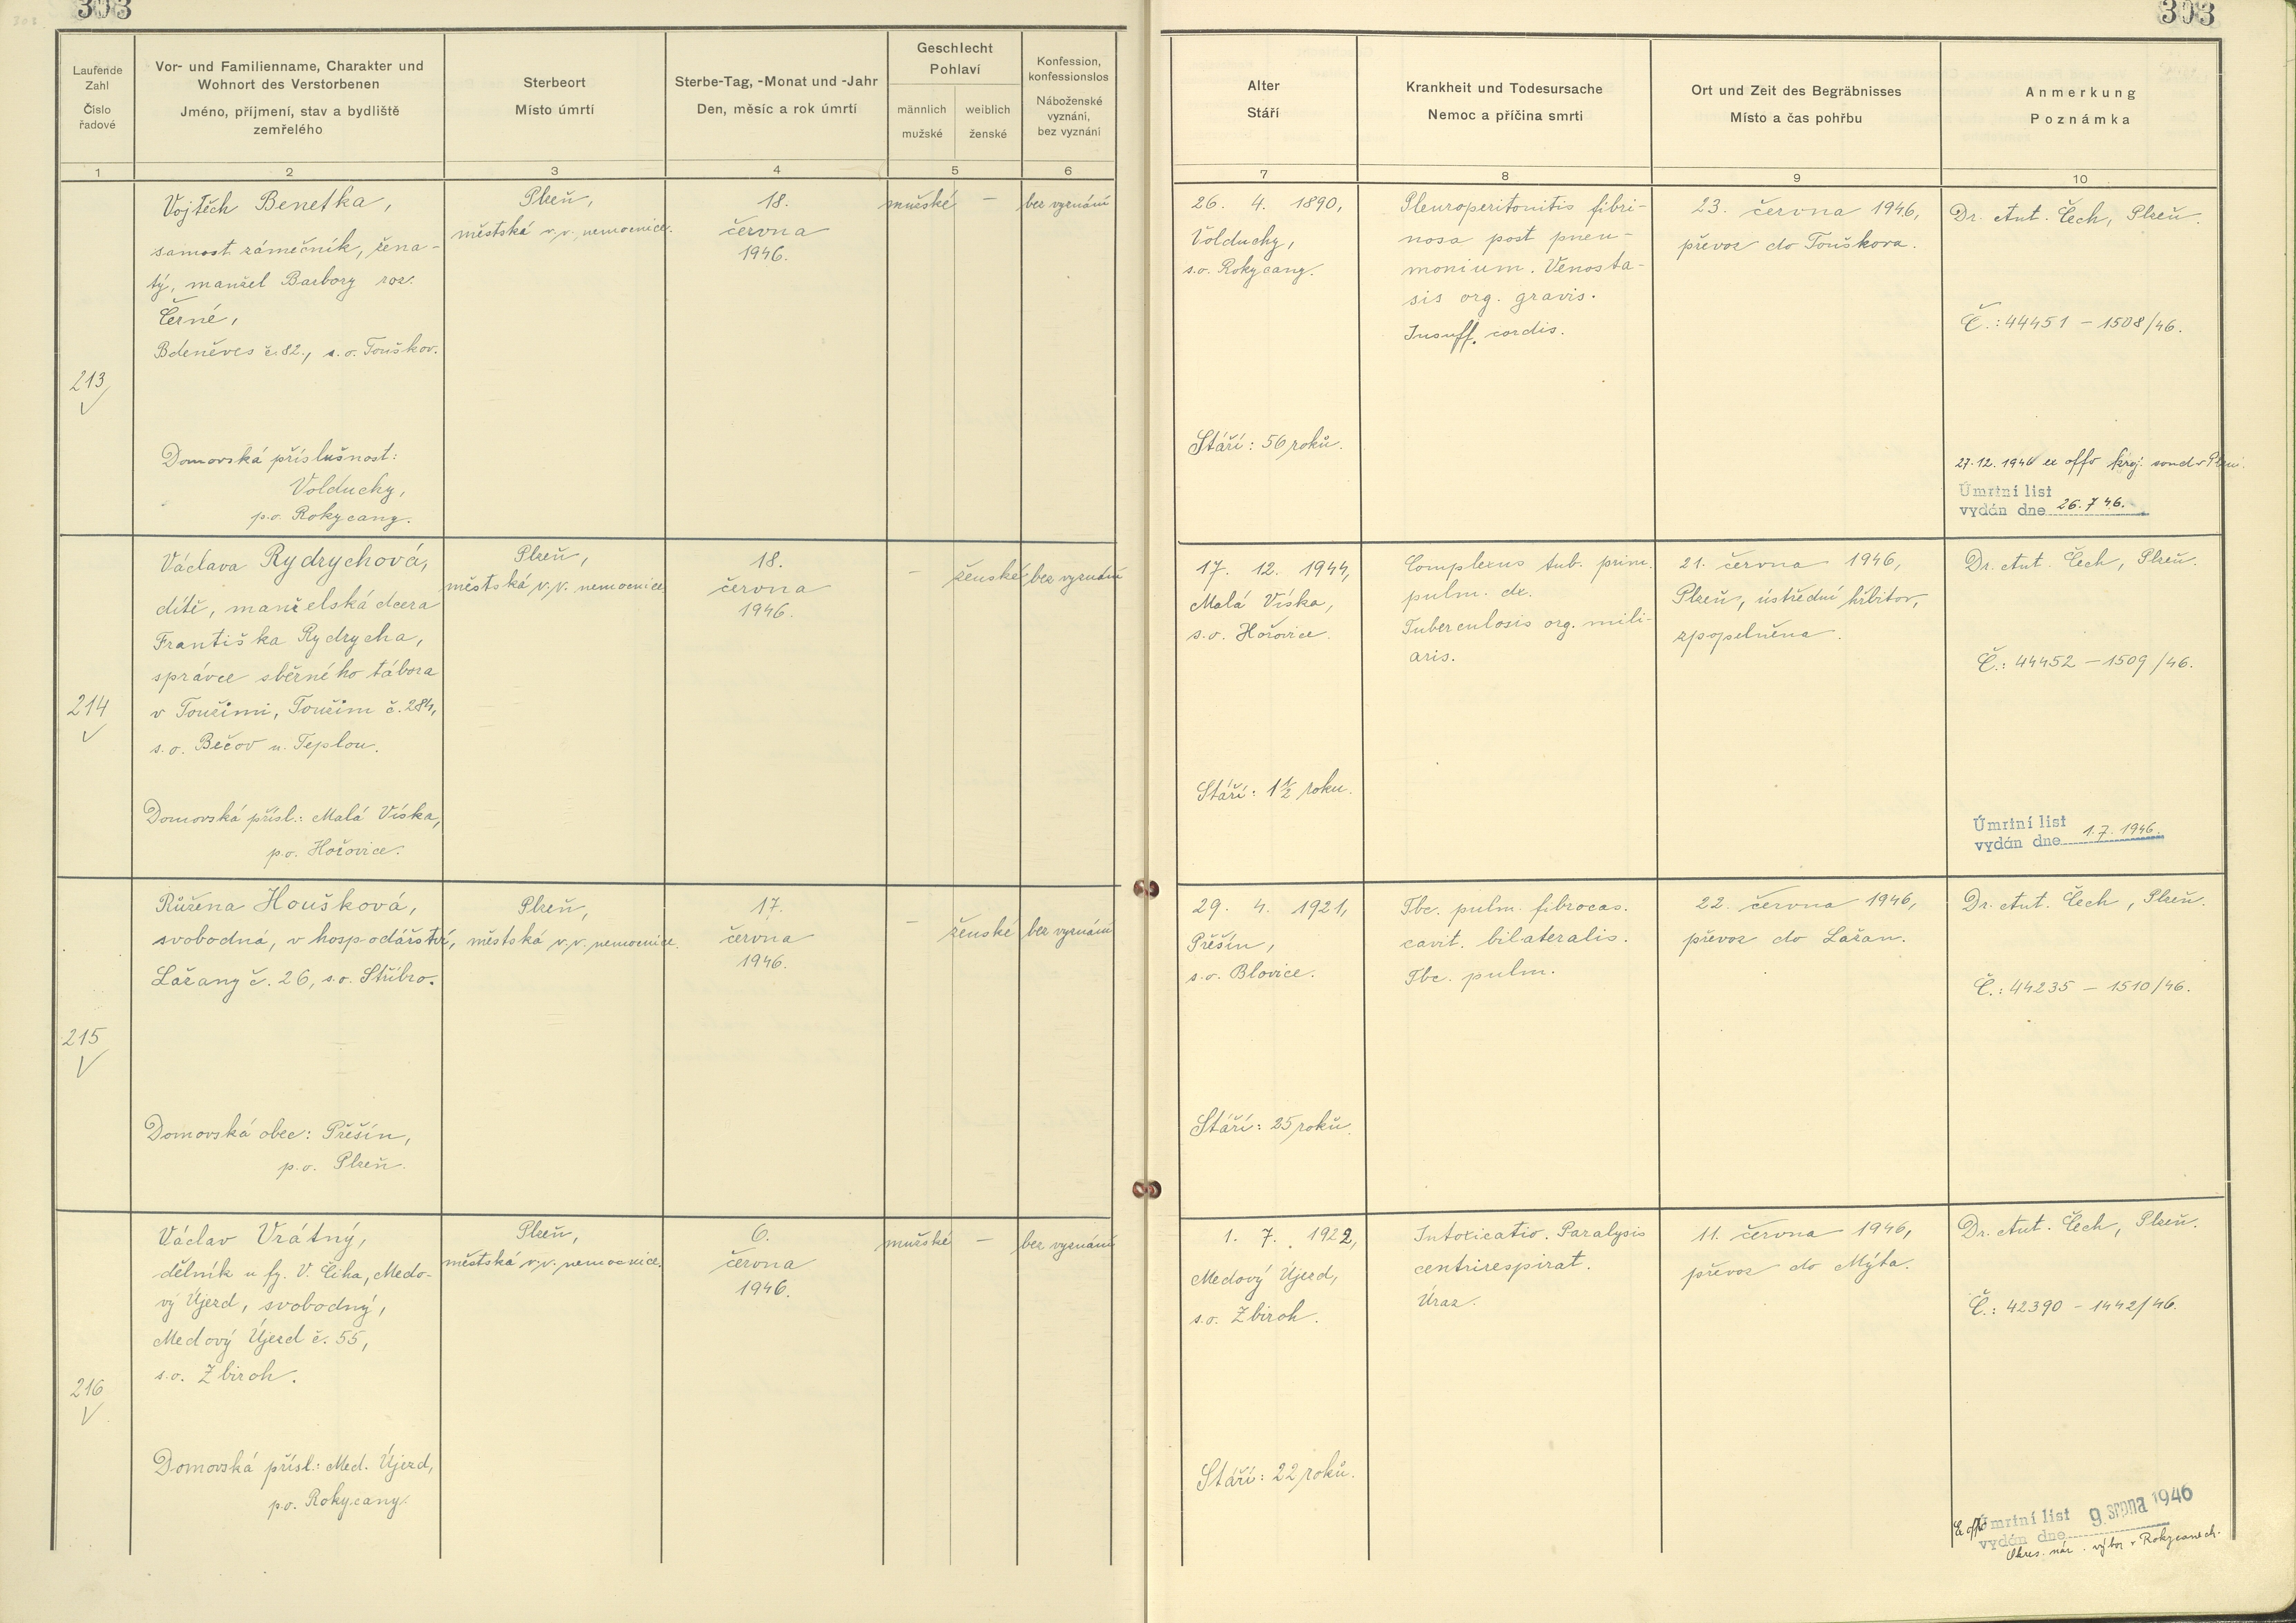 303
303
Laufende Zahl
Číslo řadové
Vor- und Familienname, Charakter und Wohnort des Verstorbenen
Jméno, příjmení, stav a bydliště zemřelého
Sterbeort
Místo úmrtí
Sterbe-Tag, -Monat und -Jahr
Den, měsíc a rok úmrtí
Geschlecht
Pohlaví
männlich
mužské
weiblich
ženské
Konfession, konfessionslos
Náboženské vyznání, bez vyznání
Alter
Stáří
Krankheit und Todesursache
Nemoc a příčina smrti
Ort und Zeit des Begräbnisses
Místo a čas pohřbu
Anmerkung
Poznámka
1 2 3 4 5 6 7 8 9 10
213
Vojtěch Benetka,
samost. zámečník, žena-
tý, manžel Barbory roz.
Černé,
Bdeněves č. 82., s. o. Touškov.
Domovská příslušnost:
Volduchy,
p.o. Rokycany.
Plzeň,
městská v.v. nemocnice.
18.
června
1946.
mužské
–
bez vyznání
26. 4. 1890,
Volduchy,
s.o. Rokycany.
Stáří: 56 roků.
Pleuroperitonitis fibri-
nosa post pneu-
monium. Venosta-
sis org. gravis.
Insuff. cordis.
23. června 1946,
převoz do Touškova.
Dr. Ant. Čech, Plzeň.
Č.: 44451 – 1508/46.
27.12. 1946 ex offo kraj. soud v Plzni.
Úmrtní list
vydán dne 26.7 46.
214
Václava Rydrychová,
dítě, manželská dcera
Františka Rydrycha,
správce sběrného tábora
v Toužimi, Toužim č. 284,
s. o. Bečov n. Teplou.
Domovská přísl.: Malá Víska,
p.o. Hořovice.
Plzeň,
městská v.v. nemocnice.
18.
června
1946.
–
ženské
bez vyznání
17. 12. 1944,
Malá Víska,
s.o. Hořovice.
Stáří: 1 1/2 roku.
Complexus tub. prim.
pulm. dx.
Tuberculosis org. mili-
aris.
21. června 1946,
Plzeň, ústřední hřbitov,
zpopelněna.
Dr. Ant. Čech, Plzeň.
Č.: 44452 – 1509/46.
Úmrtní list
vydán dne 1.7. 1946.
215
Růžena Houšková,
svobodná, v hospodářství,
Lažany č. 26, s.o. Stříbro.
Domovská obec: Přešín,
p. o. Plzeň.
Plzeň,
městská v.v. nemocnice.
17.
června
1946.
–
ženské
bez vyznání
29. 4. 1921,
Přešín,
s.o. Blovice.
Stáří: 25 roků.
Tbc. pulm. fibrocas.
cavit. bilateralis.
Tbc. pulm.
22. června 1946,
převoz do Lažan.
Dr. Ant. Čech, Plzeň.
Č.: 44235 – 1510/46.
216
Václav Vrátný,
dělník u fy. V. Čiha, Medo-
vý Újezd, svobodný,
Medový Újezd č. 55,
s.o. Zbiroh.
Domovská přísl.: Med. Újezd,
p.o. Rokycany.
Plzeň,
městská v.v. nemocnice.
6.
června
1946.
mužské
–
bez vyznání
1. 7. 1922,
Medový Újezd,
s.o. Zbiroh.
Stáří: 22 roků.
Intoxicatio. Paralysis
centrirespirat.
Úraz.
11. června 1946,
převoz do Mýta.
Dr. Ant. Čech, Plzeň.
Č.: 42390 – 1442/46.
Ex offo Úmrtní list
vydán dne 9. srpna 1946
Okres. nár. výbor v Rokycanech.